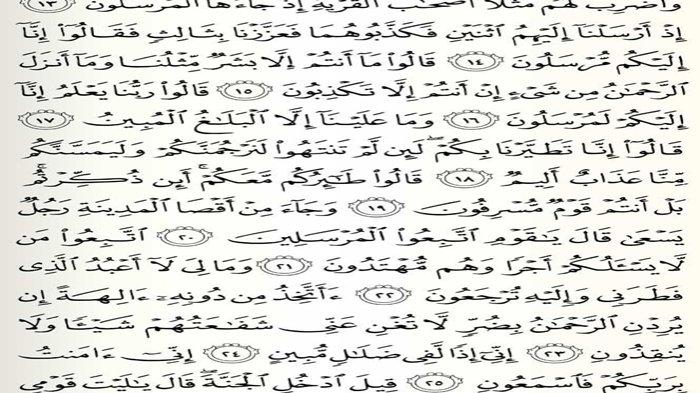 وَاضْرِبْ لَهُم مَّثَلًا أَصْحَٰبَ الْقَرْيَةِ إِذْ جَآءَهَا الْمُرْسَلُونَ ١٣
إِذْ أَرْسَلْنَآ إِلَيْهِمُ اثْنَيْنِ فَكَذَّبُوهُمَا فَعَزَّزْنَا بِثَالِثٍ فَقَالُوٓا۟ إِنَّآ
إِلَيْكُم مُّرْسَلُونَ ١٤ قَالُوا۟ مَآ أَنتُمْ إِلَّا بَشَرٌ مِّثْلُنَا وَمَآ أَنزَلَ
الرَّحْمَٰنُ مِن شَىْءٍ إِنْ أَنتُمْ إِلَّا تَكْذِبُونَ ١٥ قَالُوا۟ رَبُّنَا يَعْلَمُ إِنَّآ
إِلَيْكُمْ لَمُرْسَلُونَ ١٦ وَمَا عَلَيْنَآ إِلَّا الْبَلَٰغُ الْمُبِينُ ١٧
قَالُوٓا۟ إِنَّا تَطَيَّرْنَا بِكُمْ ۖ لَئِن لَّمْ تَنتَهُوا۟ لَنَرْجُمَنَّكُمْ وَلَيَمَسَّنَّكُم
مِّنَّا عَذَابٌ أَلِيمٌ ١٨ قَالُوا۟ طَٰٓئِرُكُم مَّعَكُمْ ۚ أَئِن ذُكِّرْتُم ۚ
بَلْ أَنتُمْ قَوْمٌ مُّسْرِفُونَ ١٩ وَجَآءَ مِنْ أَقْصَا الْمَدِينَةِ رَجُلٌ
يَسْعَىٰ قَالَ يَٰقَوْمِ اتَّبِعُوا۟ الْمُرْسَلِينَ ٢٠ اتَّبِعُوا۟ مَن
لَّا يَسْـَٔلُكُمْ أَجْرًا وَهُم مُّهْتَدُونَ ٢١ وَمَا لِىَ لَآ أَعْبُدُ الَّذِى
فَطَرَنِى وَإِلَيْهِ تُرْجَعُونَ ٢٢ ءَأَتَّخِذُ مِن دُونِهِۦٓ ءَالِهَةً إِن
يُرِدْنِ الرَّحْمَٰنُ بِضُرٍّ لَّا تُغْنِ عَنِّى شَفَٰعَتُهُمْ شَيْـًٔا وَلَا
يُنقِذُونِ ٢٣ إِنِّىٓ إِذًا لَّفِى ضَلَٰلٍ مُّبِينٍ ٢٤ إِنِّىٓ ءَامَنتُ
بِرَبِّكُمْ فَاسْمَعُونِ ٢٥ قِيلَ ادْخُلِ الْجَنَّةَ ۖ قَالَ يَٰلَيْتَ قَوْمِى